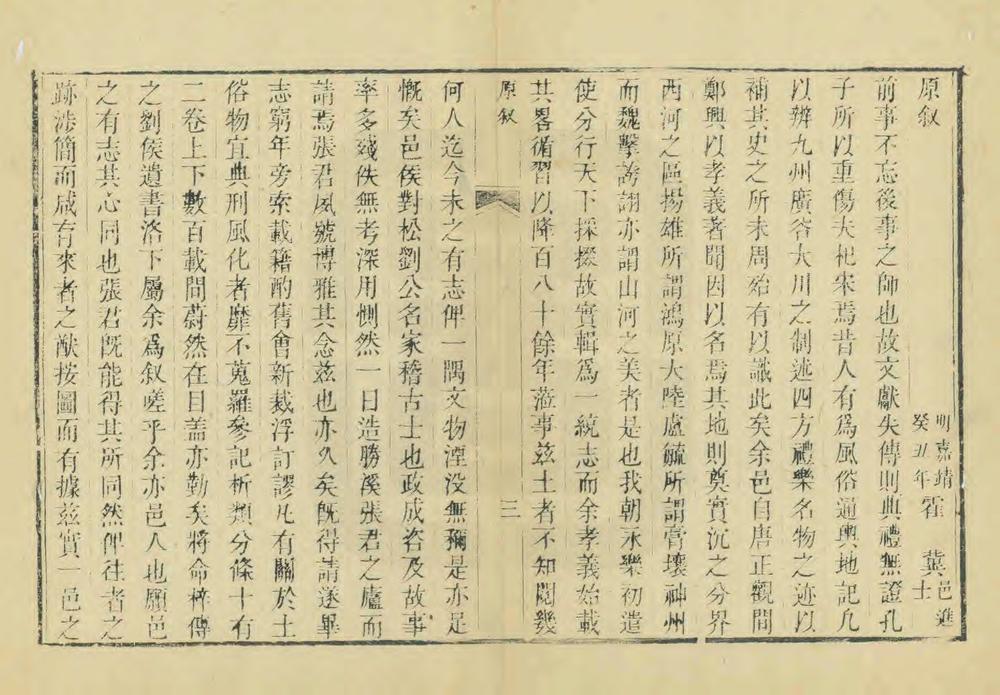 原叙
明嘉靖癸丑年霍冀邑進士
前事不忘後事之師也故文獻失傳則典禮無證孔
子所以重傷夫杞宋焉昔人有爲風俗通輿地記凡
以辨九州廣谷大川之制述四方禮樂名物之迹以
補其史之所未周殆有以識此矣余邑自唐正觀間
鄭興以孝義著聞因以名焉其地則奠實沉之分界
西河之區揚雄所謂鴻原大陸盧毓所謂膏壤神州
而魏擊誇詡亦謂山河之美者是也我朝永樂初遣
使分行天下採掇故實輯爲一統志而余孝義始載
其畧循習以降百八十餘年蒞事兹土者不知閱幾
原叙
三
何人迄今未之有志俾一隅文物湮没無稱是亦足
慨矣邑侯對松劉公名家稽古士也政成咨及故事
率多殘佚無考深用惻然一日造勝溪張君之廬而
請焉張君夙號博雅其念兹也亦久矣既得請遂畢
志窮年旁索載籍酌舊會新裁浮訂謬凡有關於土
俗物宜典刑風化者靡不蒐羅參記析類分條十有
二卷上下數百載間蔚然在目盖亦勤矣將命梓傳
之劉侯遺書洛下屬余爲叙嗟乎余亦邑人也願邑
之有志其心同也張君既能得其所同然俾往者之
跡渉簡而咸有來者之猷按圖而有據兹實一邑之